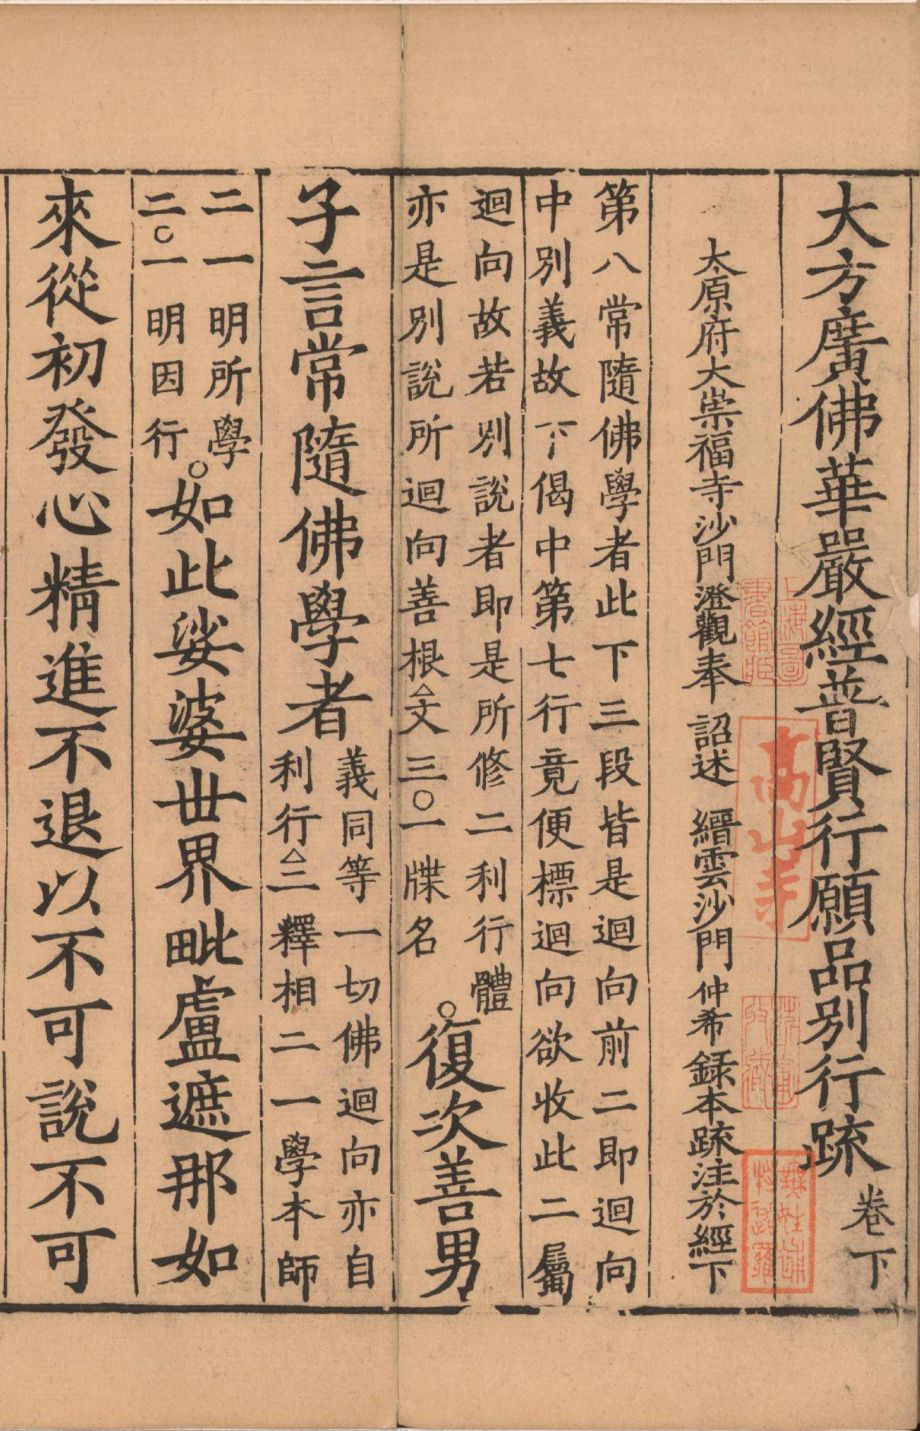 大方廣佛華嚴經普賢行願品別行疏卷下
太原府大崇福寺沙門澄觀奉 詔述 縉雲沙門仲希錄本疏注於經下
第八常隨佛學者此下三段皆是迴向前二即迴向
中別義故下偈中第七行竟便標迴向欲收此二屬
迴向故若別說者即是所修二利行體
亦是別說所迴向善根△文三○一牒名
○復次善男
子言常隨佛學者
義同等一切佛迴向亦自
利行△二釋相二一學本師
二一明所學
二○一明因行
○如此娑婆世界毗盧遮那如
來從初發心精進不退以不可說不可
上海圖
書館藏
高山寺